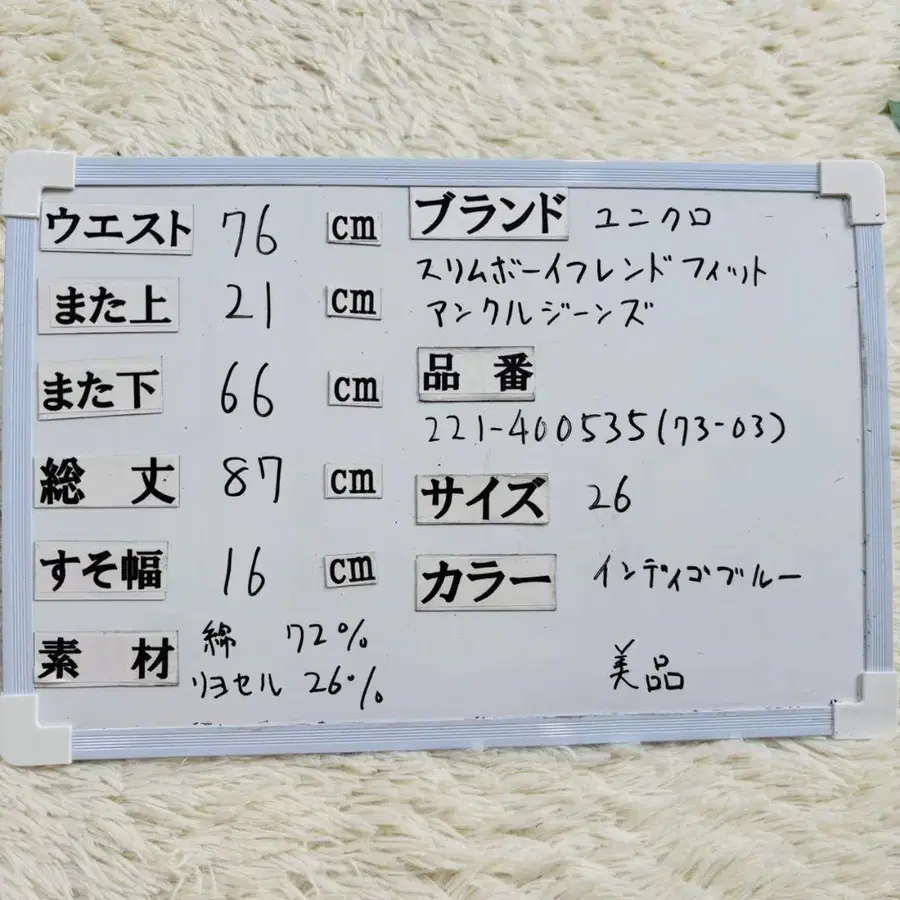 ウエスト 76 cm
また上 21 cm
また下 66 cm
総丈 87 cm
すそ幅 16 cm
素材 綿 72%
リヨセル 26%
ブランド ユニクロ
スリムボーイフレンドフィット
アンクルジーンズ
品番
221-400535(73-03)
サイズ 26
カラー インディゴブルー
美品